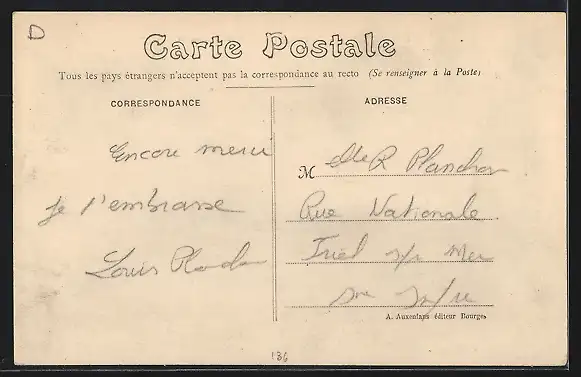 D
Carte Postale
Tous les pays étrangers n'acceptent pas la correspondance au recto (Se renseigner à la Poste)
CORRESPONDANCE
ADRESSE
Encore merci
je t'embrasse
Louis
M Elle R Planchon
Rue Nationale
s/ Mer
A. Auxenfans éditeur Bourges
136